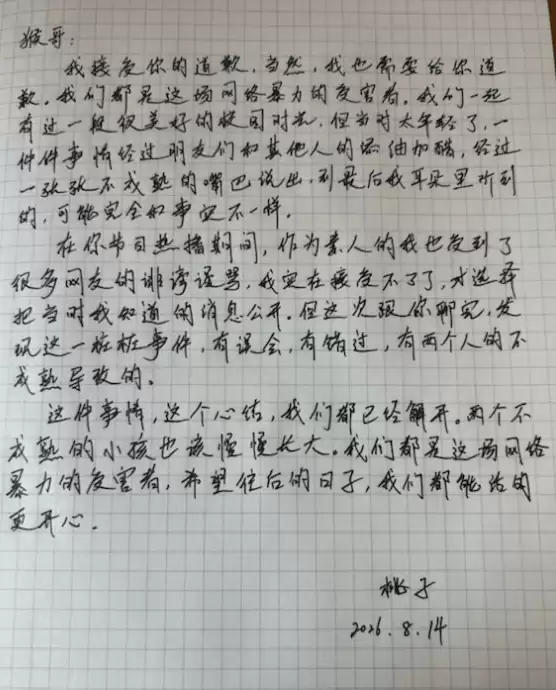 猴哥：
我接受你的道歉，当然，我也需要给你道
歉。我们都是这场网络暴力的受害者。我们一起
有过一段很美好的校园时光，但当时太年轻了，一
件件事情经过朋友们和其他人的添油加醋，经过
一张张不成熟的嘴巴说出，到最后我耳朵里听到
的，可能完全和事实不一样。
在你节目热播期间，作为素人的我也受到了
很多网友的诽谤谩骂，我实在接受不了了，才选择
把当时我知道的消息公开。但这次跟你聊完，发
现这一桩桩事件，有误会，有错过，有两个人的不
成熟导致的。
这件事情，这个心结，我们都已经解开。两个不
成熟的小孩也该慢慢长大。我们都是这场网络
暴力的受害者，希望往后的日子，我们都能活的
更开心．
桃子
2026.8.14